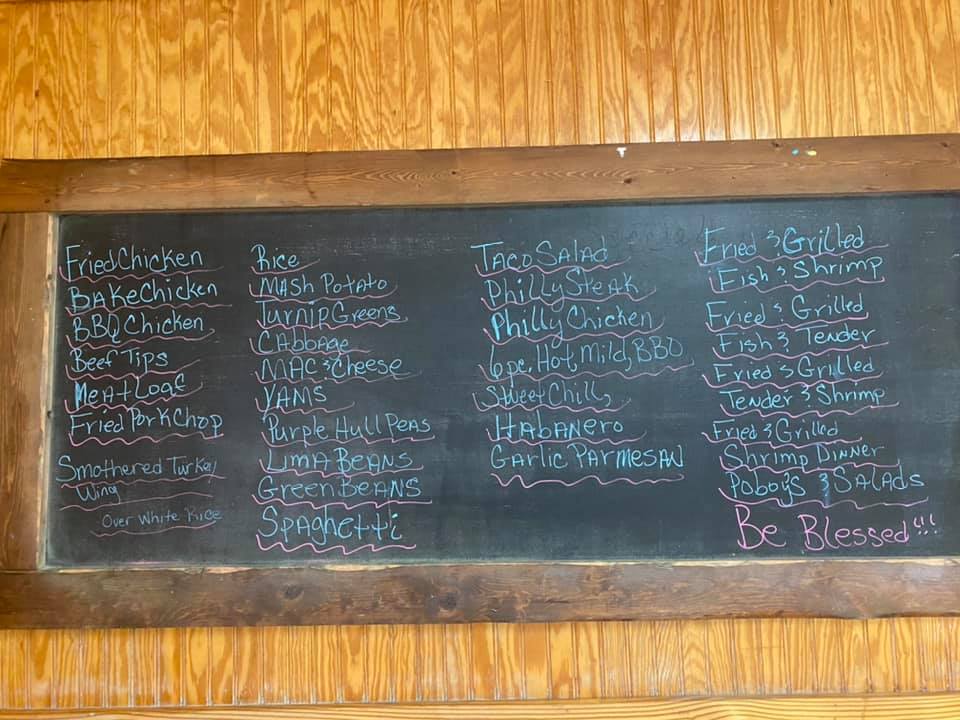 Fried Chicken
Bake Chicken
BBQ Chicken
Beef Tips
Meat Loaf
Fried Pork Chop
Smothered Turkey
Wing
Over White Rice
Rice
Mash Potato
Turnip Greens
Cabbage
Mac & Cheese
Yams
Purple Hull Peas
Lima Beans
Green Beans
Spaghetti
Taco Salad
Philly Steak
Philly Chicken
6pc. Hot, Mild, BBQ
Sweet Chili,
Habanero
Garlic Parmesan
Fried & Grilled
Fish & Shrimp
Fried & Grilled
Fish & Tender
Fried & Grilled
Tender & Shrimp
Fried & Grilled
Shrimp Dinner
Poboys & Salads
Be Blessed!!!